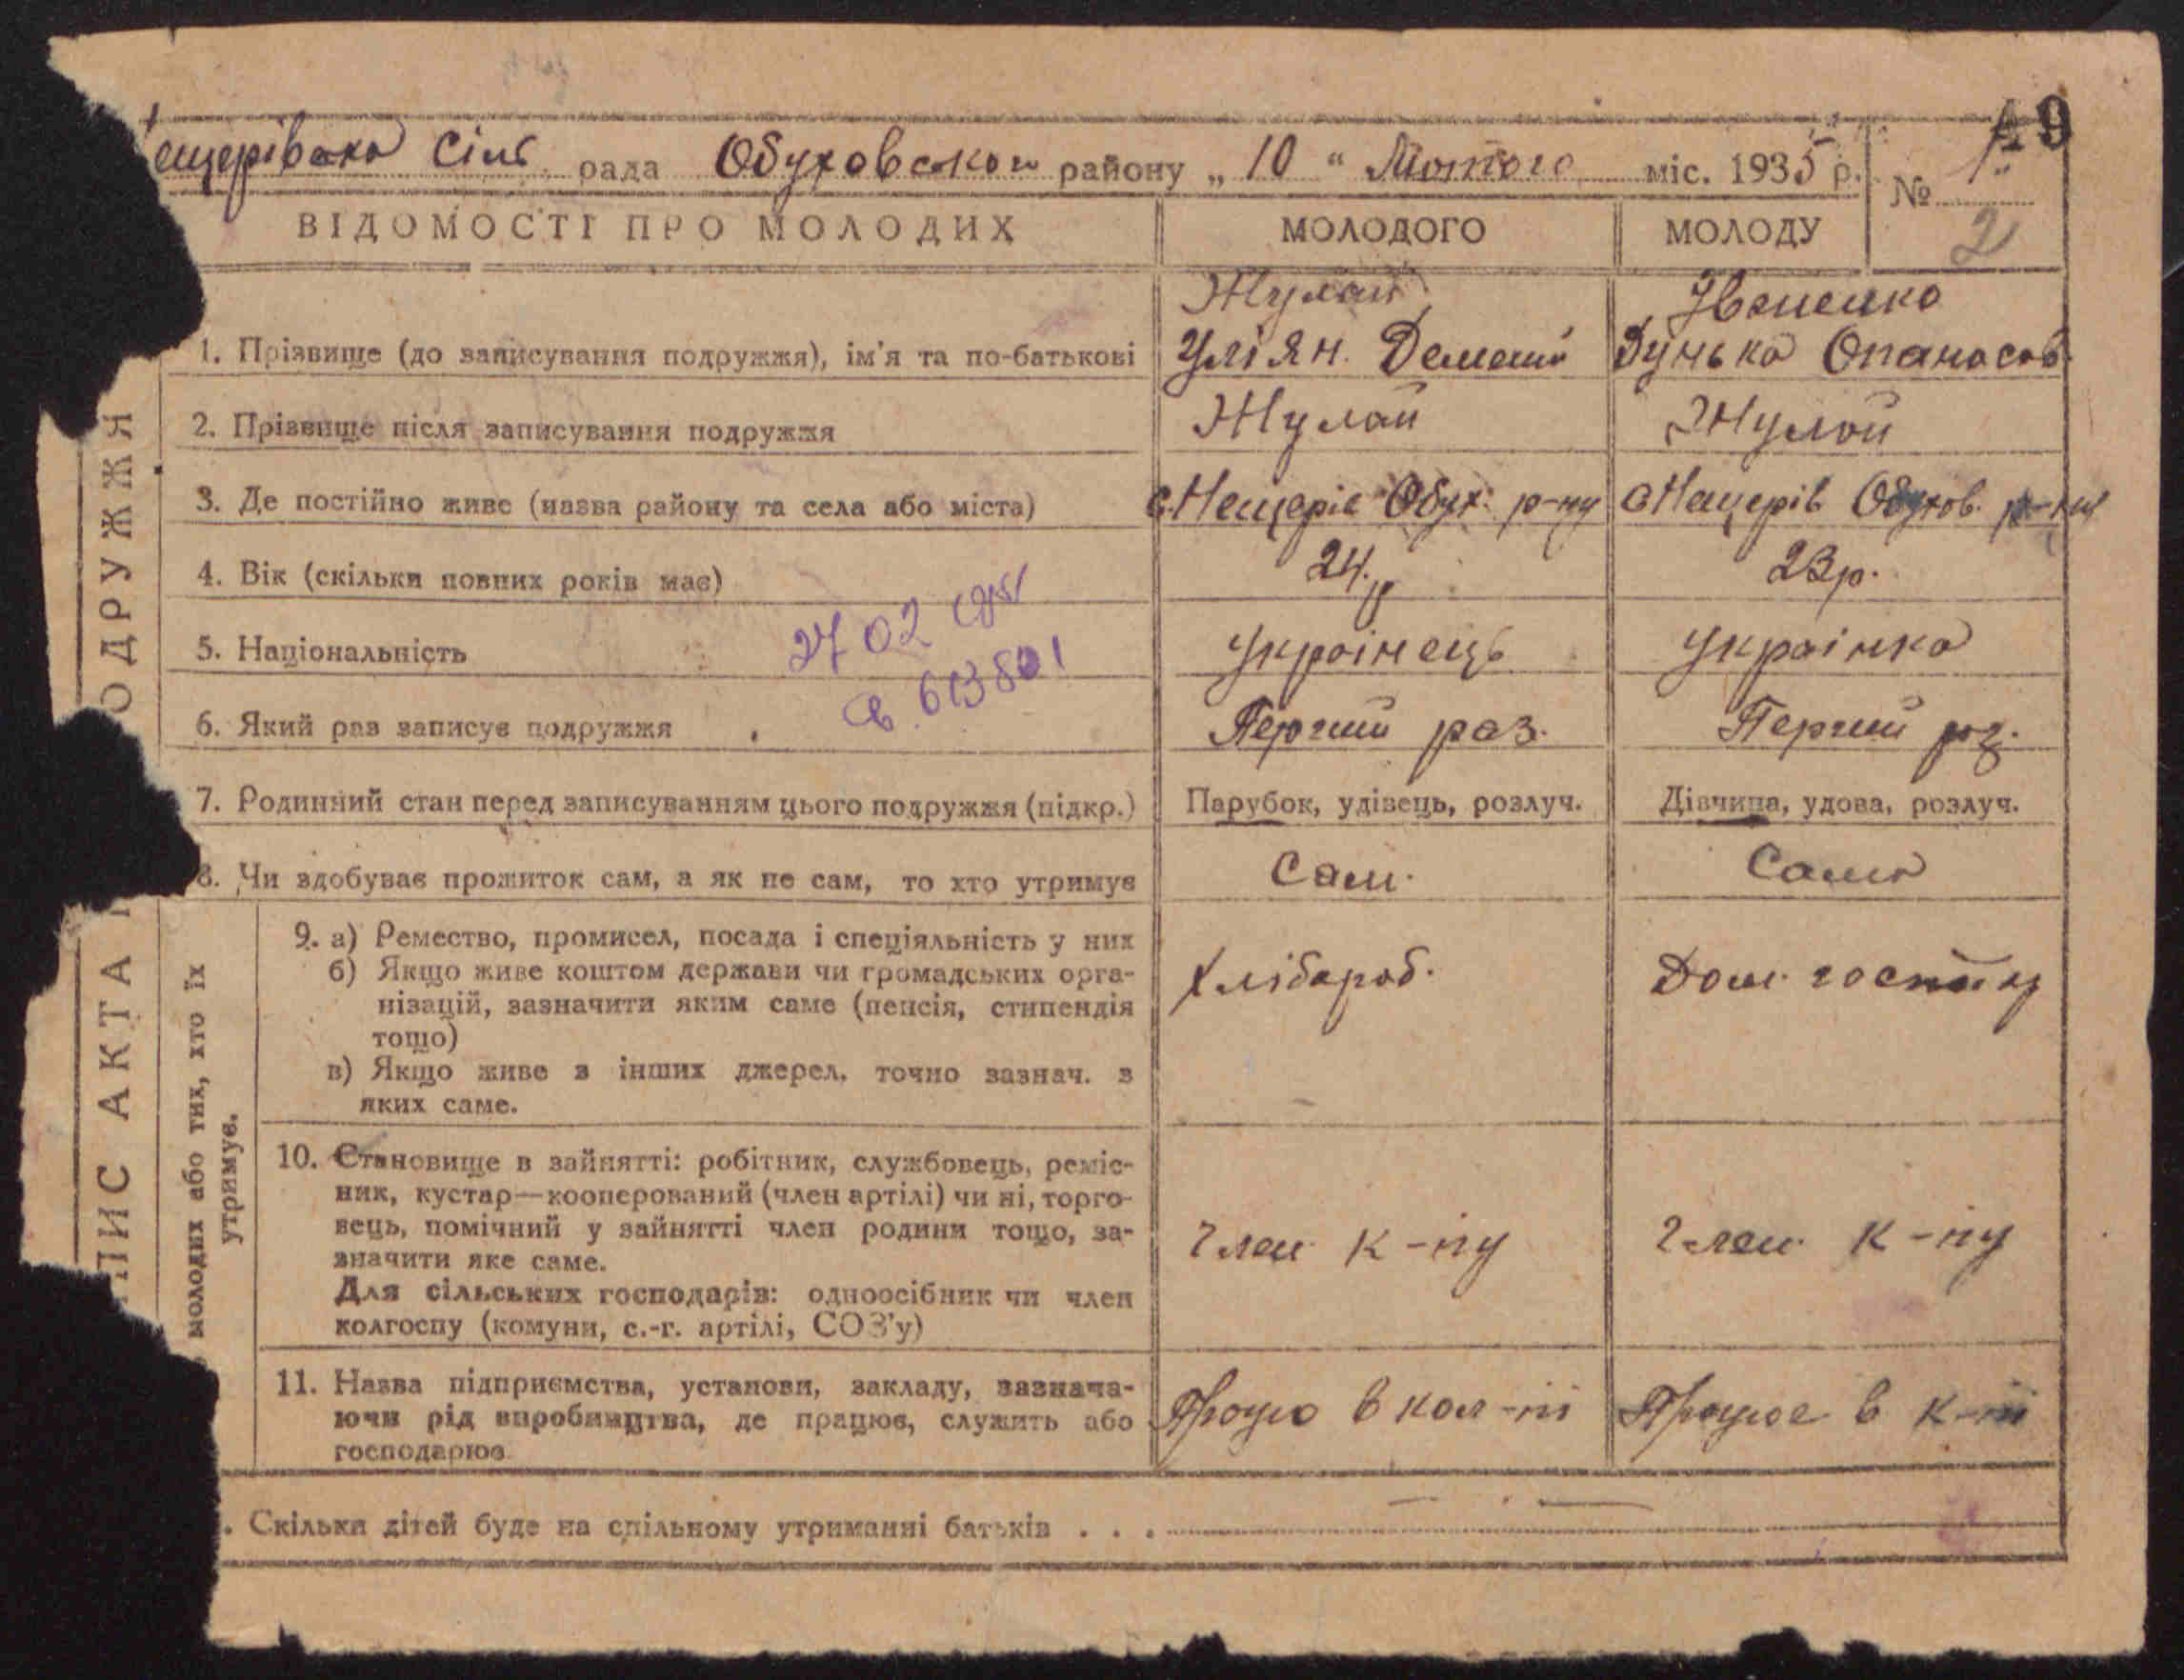 ещерівська Сіль рада Обуховського району „ 10 “ Лютого міс. 1935 р.
№ 1
9
2
ВІДОМОСТІ ПРО МОЛОДИХ МОЛОДОГО МОЛОДУ
Жулай Івженко
1. Прізвище (до записування подружжя), ім'я та по-батькові Улян. Демеші Дунька Опанасов
2. Прізвище після записування подружжя Жулай Жулай
3. Де постійно живе (назва району та села або міста) с. Нещерів Обух. р-ну с Нещерів Обухов. р-ну
4. Вік (скільки повних років має) 24.р 23р.
5. Національність Украінець Украінка
2702
613801
6. Який раз записує подружжя Перший раз. Перший раз.
7. Родинний стан перед записуванням цього подружжя (підкр.) Парубок, удівець, розлуч. Дівчина, удова, розлуч.
8. Чи здобуває прожиток сам, а як не сам, то хто утримує Сам. Сама
9. а) Ремество, промисел, посада і спеціяльність у них
б) Якщо живе коштом держави чи громадських орга- Хлібороб. Дом. госпіну
нізацій, зазначити яким саме (пенсія, стипендія
тощо)
в) Якщо живе з інших джерел, точно зазнач. з
яких саме.
10. Становище в зайнятті: робітник, службовець, реміс-
ник, кустар—кооперований (член артілі) чи ні, торго-
вець, помічний у зайнятті член родини тощо, за- член к-пу член к-пу
значити яке саме.
Для сільських господарів: одноосібник чи член
колгоспу (комуни, с.-г. артілі, СОЗ'у)
11. Назва підприємства, установи, закладу, зазнача-
ючи рід виробництва, де працює, служить або Працю в кол-пі Працює в к-пі
господарює
. Скільки дітей буде на спільному утриманні батьків . . .
ПИС АКТА ОДРУЖЖЯ
молодих або тих, хто їх
утримує.